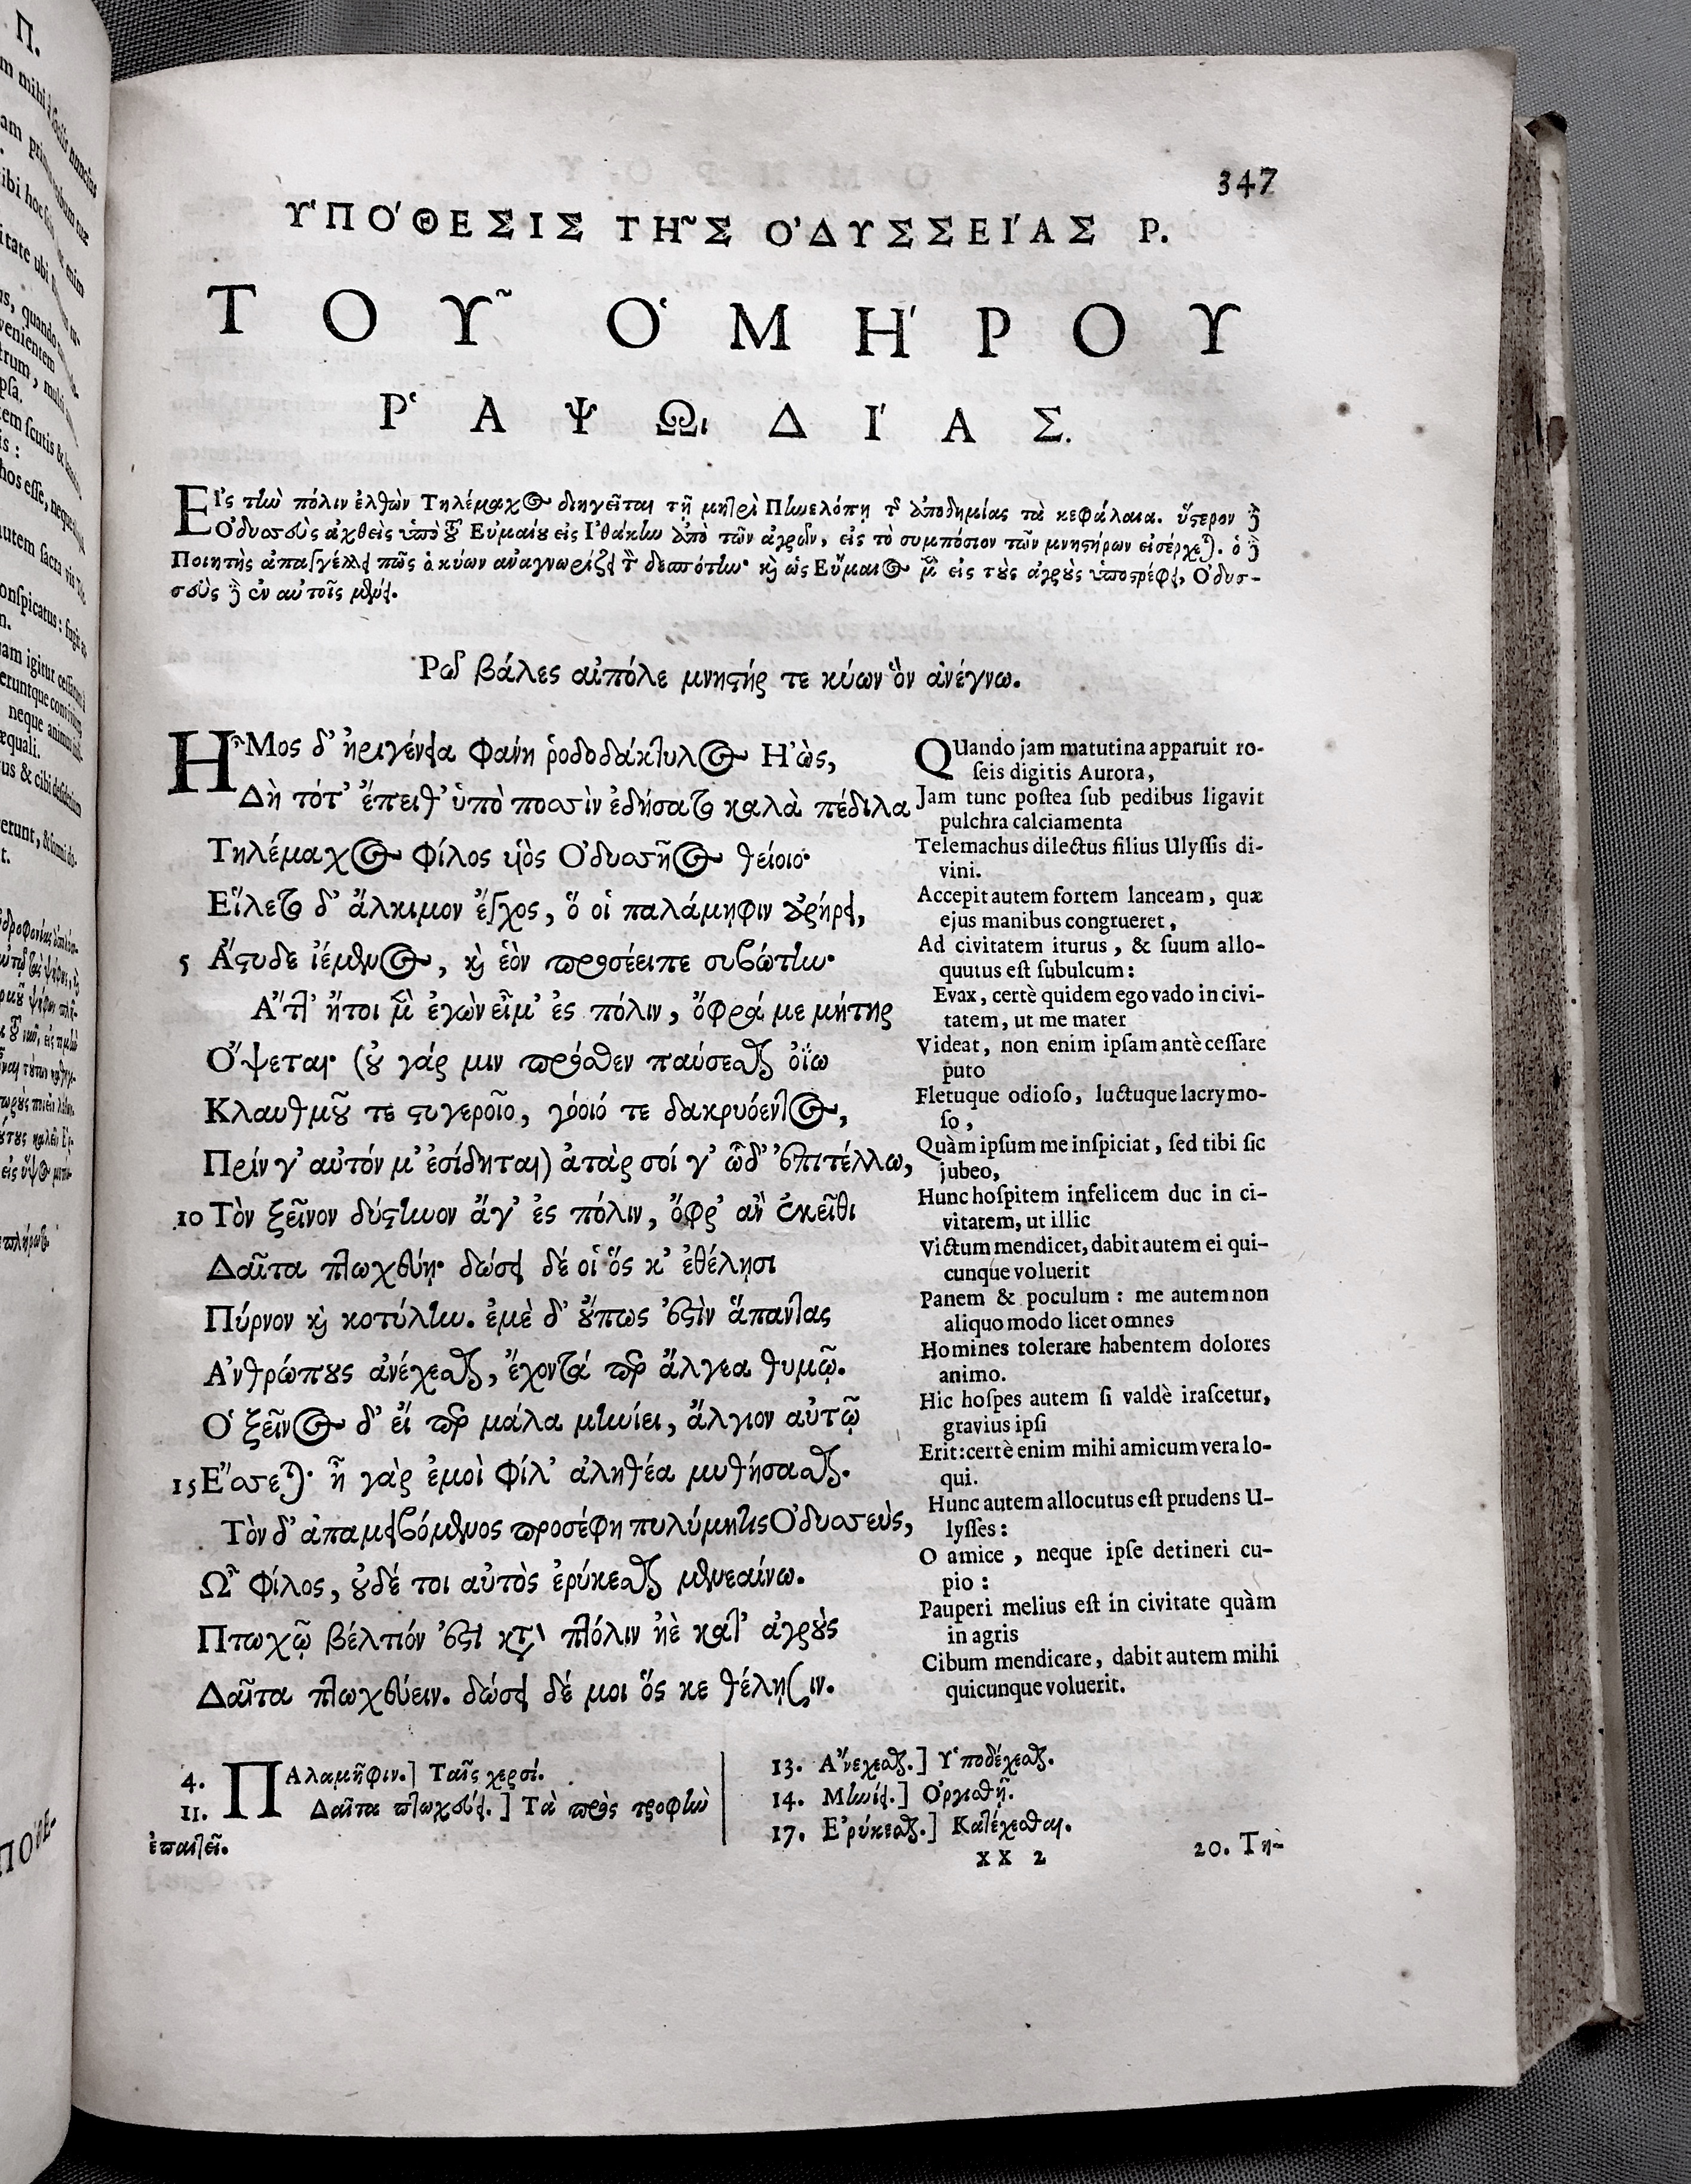 347
ΥΠΟΘΕΣΙΣ ΤΗΣ ΟΔΥΣΣΕΙΑΣ Ρ.
ΤΟΥ ΟΜΗΡΟΥ
ΡΑΨΩΔΙΑΣ.
Εἰς τὴν πόλιν ἐλθὼν Τηλέμαχος διηγεῖται τῇ μητρὶ Πηνελόπῃ τῆς ἀποδημίας τὰ κεφάλαια. ὕστερον δὲ
Ὀδυσσεὺς ἀχθεὶς ὑπὸ τοῦ Εὐμαίου εἰς Ἰθάκην ἀπὸ τῶν ἀγρῶν, εἰς τὸ συμπόσιον τῶν μνηστήρων εἰσέρχεται. ὁ δὲ
Ποιητὴς ἀπαγγέλλει πῶς ὁ κύων ἀναγνωρίζει τὸν δεσπότην· καὶ ὡς Εὔμαιος μὲν εἰς τοὺς ἀγροὺς ὑποστρέφει, Ὀδυσ-
σεὺς δὲ ἐν αὐτοῖς μένει.
Ρῶ βάλες αἰπόλε μνηστήρ τε κύων ὃν ἀνέγνω.
ΗΜος δ' ἠριγένεια φάνη ῥοδοδάκτυλος Ἠὼς,
Δὴ τότ' ἔπειθ' ὑπὸ ποσσὶν ἐδήσατο καλὰ πέδιλα
Τηλέμαχος φίλος υἱὸς Ὀδυσσῆος θείοιο·
Εἵλετο δ' ἄλκιμον ἔγχος, ὅ οἱ παλάμηφιν ἀρήρει,
5 Ἄστυδε ἱέμενος, καὶ ἑὸν προσέειπε συβώτην·
Ἄττ' ἤτοι μὲν ἐγὼν εἶμ' ἐς πόλιν, ὄφρά με μήτηρ
Ὄψεται· (οὐ γάρ μιν πρόσθεν παύσεσθαι ὀΐω
Κλαυθμοῦ τε στυγεροῖο, γόοιό τε δακρυόεντος,
Πρίν γ' αὐτόν μ' ἐσίδηται) ἀτὰρ σοί γ' ὧδ' ἐπιτέλλω,
10 Τὸν ξεῖνον δύστηνον ἄγ' ἐς πόλιν, ὄφρ' ἂν ἐκεῖθι
Δαῖτα πτωχεύῃ· δώσει δέ οἱ ὅς κ' ἐθέλησι
Πύρνον καὶ κοτύλην. ἐμὲ δ' οὔπως ἐστὶν ἅπαντας
Ἀνθρώπους ἀνέχεσθαι, ἔχοντά περ ἄλγεα θυμῷ.
Ὁ ξεῖνος δ' εἴ περ μάλα μηνίει, ἄλγιον αὐτῷ
15 Ἔσσεται· ἦ γὰρ ἐμοὶ φίλ' ἀληθέα μυθήσασθαι.
Τὸν δ' ἀπαμειβόμενος προσέφη πυλύμητις Ὀδυσσεὺς,
Ὦ φίλος, οὐδέ τοι αὐτὸς ἐρύκεσθαι μενεαίνω.
Πτωχῷ βέλτιόν ἐστι κατὰ πτόλιν ἠὲ κατ' ἀγροὺς
Δαῖτα πτωχεύειν. δώσει δέ μοι ὅς κε θέλησιν.
QUando jam matutina apparuit ro-
seis digitis Aurora,
Jam tunc postea sub pedibus ligavit
pulchra calciamenta
Telemachus dilectus filius Ulyssis di-
vini.
Accepit autem fortem lanceam, quæ
ejus manibus congrueret,
Ad civitatem iturus, & suum allo-
quutus est subulcum:
Evax, certè quidem ego vado in civi-
tatem, ut me mater
Videat, non enim ipsam antè cessare
puto
Fletuque odioso, luctuque lacrymo-
so,
Quàm ipsum me inspiciat, sed tibi sic
jubeo,
Hunc hospitem infelicem duc in ci-
vitatem, ut illic
Victum mendicet, dabit autem ei qui-
cunque voluerit
Panem & poculum: me autem non
aliquo modo licet omnes
Homines tolerare habentem dolores
animo.
Hic hospes autem si valdè irascetur,
gravius ipsi
Erit: certè enim mihi amicum vera lo-
qui.
Hunc autem allocutus est prudens U-
lysses:
O amice, neque ipse detineri cu-
pio:
Pauperi melius est in civitate quàm
in agris
Cibum mendicare, dabit autem mihi
quicunque voluerit.
4. ΠΑλαμῆφιν.] Ταῖς χερσί.
11. Δαῖτα πτωχεύει.] Τὰ πρὸς τροφὴν
ἐπαιτεῖ.
13. Ἄνεχεσθαι.] Ὑποδέχεσθαι.
14. Μηνίει.] Ὀργισθῇ.
17. Ἐρύκεσθαι.] Κατέχεσθαι.
XX 2
20. Τη-